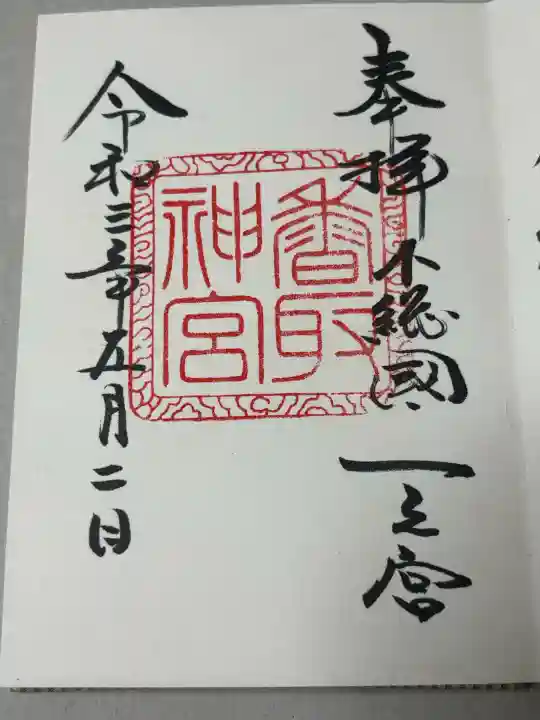 奉拝
下総國
一之宮
香取
神宮
令和三年五月二日